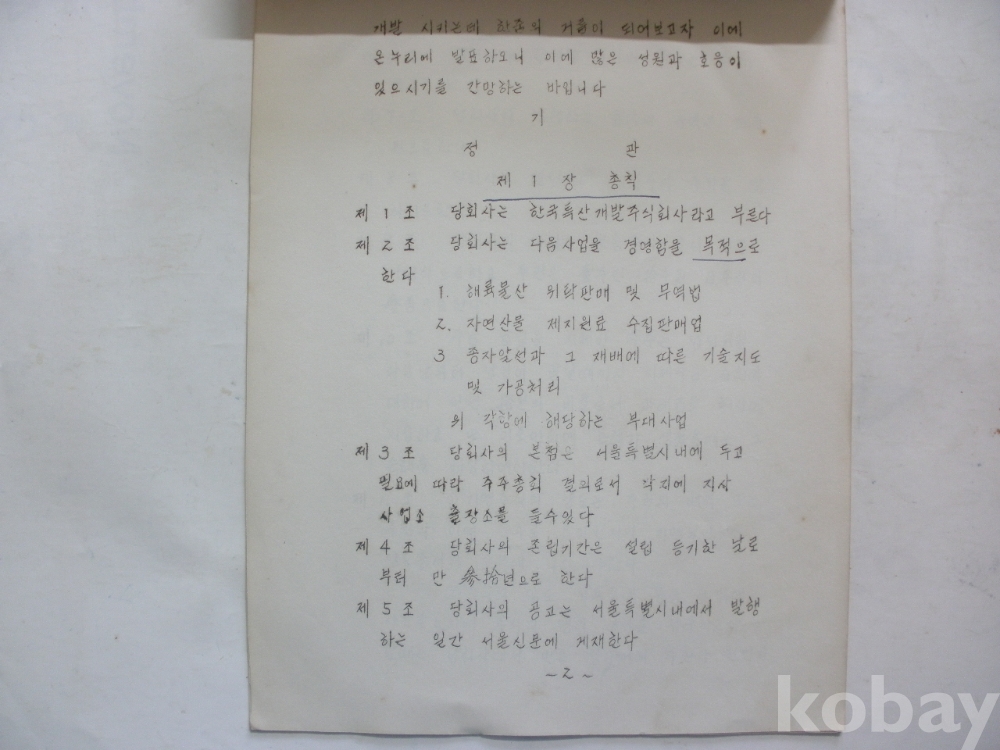 개발 시키는데 한줌의 거름이 되어보고자 이에
온누리에 발표하오니 이에 많은 성원과 호응이
있으시기를 간망하는 바입니다
기
정 관
제 1 장 총칙
제 1 조 당회사는 한국특산개발주식회사라고 부른다
제 2 조 당회사는 다음사업을 경영함을 목적으로
한다
1. 해륙물산 위탁판매 및 무역법
2. 자연산물 제지원료 수집판매업
3 종자알선과 그 재배에 따른 기술지도
및 가공처리
의 각항에 해당하는 부대사업
제 3 조 당회사의 본점은 서울특별시내에 두고
필요에 따라 주주총회 결의로서 각지에 지상
사업소 출장소를 둘수있다
제 4 조 당회사의 존립기간은 설립 등기한 날로
부터 만 参拾년으로 한다
제 5 조 당회사의 공고는 서울특별시내에서 발행
하는 일간 서울신문에 게재한다
~2~
kobay